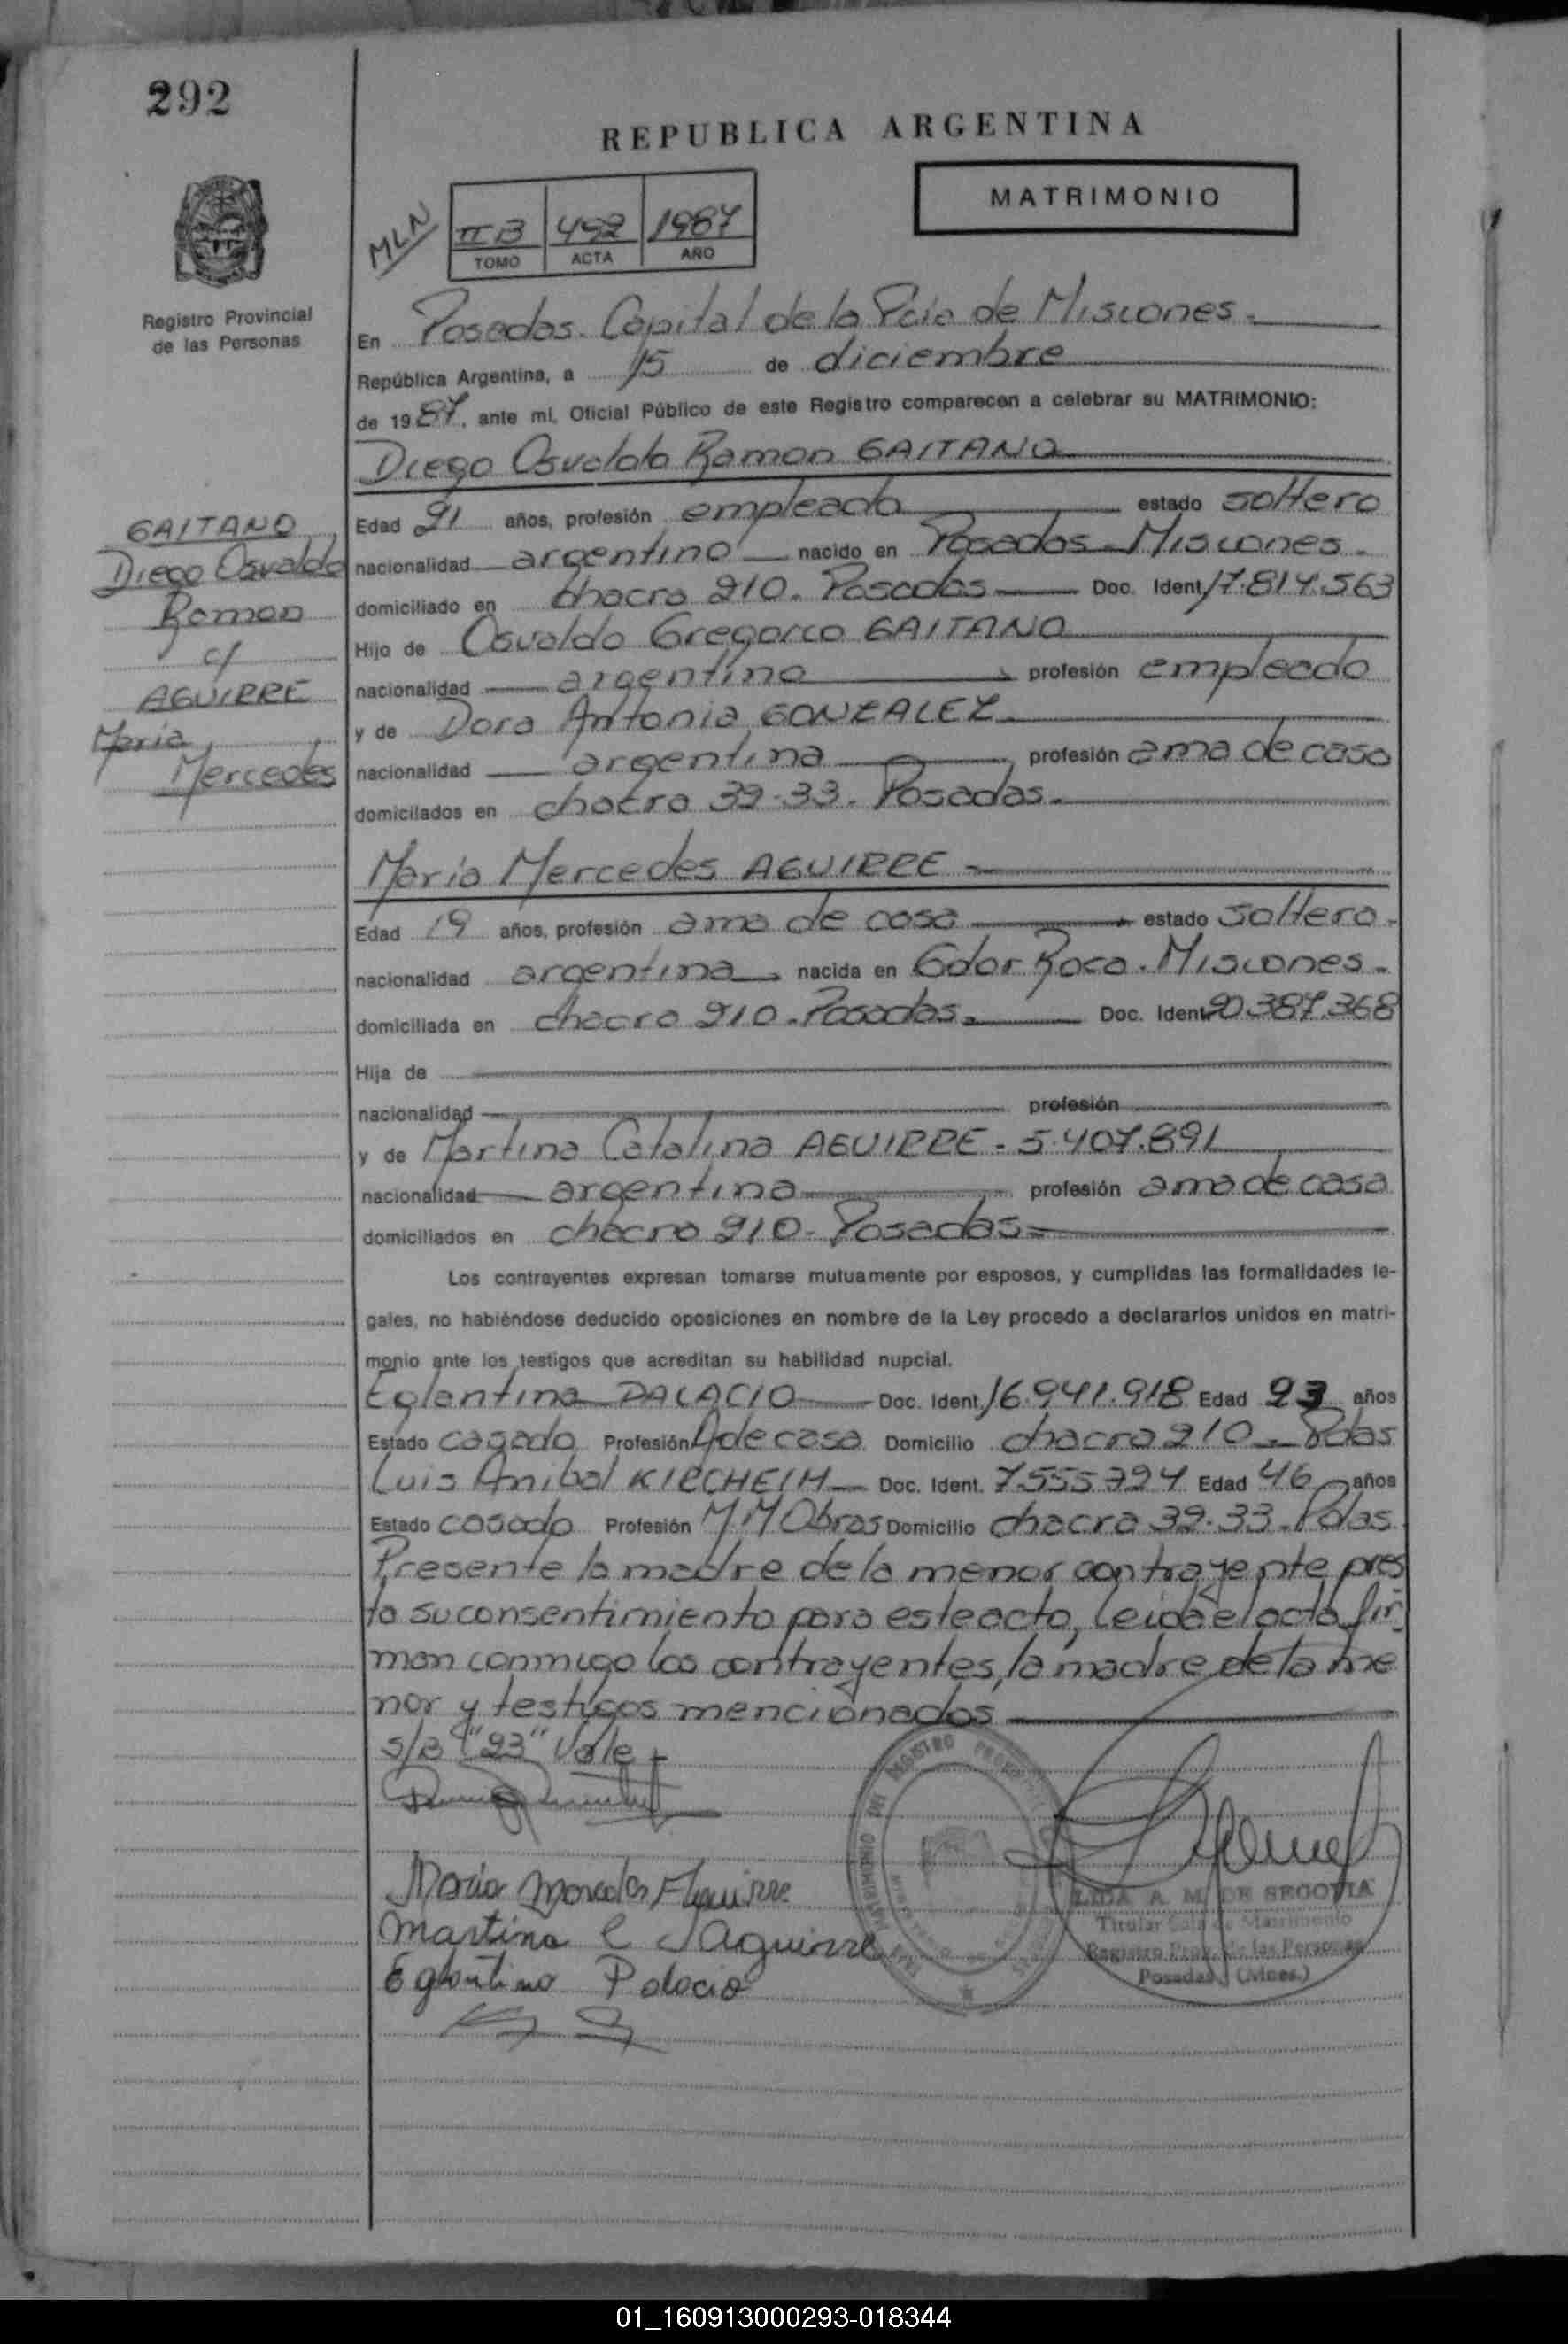 292
REPUBLICA ARGENTINA
MATRIMONIO
MLN
II B 492 1987
TOMO ACTA AÑO
Registro Provincial
de las Personas
En Posadas. Capital de la Pcia de Misiones.
República Argentina, a 15 de diciembre
de 1987, ante mí, Oficial Público de este Registro comparecen a celebrar su MATRIMONIO:
Diego Osvaldo Ramon GAITANO
GAITANO
Diego Osvaldo
Ramon
c/
AGUIRRE
Maria
Mercedes
Edad 21 años, profesión empleado estado soltero
nacionalidad argentino nacido en Posadas Misiones.
domiciliado en chacra 210. Posadas Doc. Ident. 17.814.563
Hijo de Osvaldo Gregorio GAITANO
nacionalidad argentina profesión empleado
y de Dora Antonia GONZALEZ
nacionalidad argentina profesión ama de casa
domicilados en chacra 39-33. Posadas.
Maria Mercedes AGUIRRE
Edad 19 años, profesión ama de casa estado soltera
nacionalidad argentina nacida en Gdor Roca. Misiones.
domiciliada en chacra 210. Posadas. Doc. Ident. 20.387.368
Hija de
nacionalidad profesión
y de Martina Catalina AGUIRRE - 5.407.891
nacionalidad argentina profesión ama de casa
domiciliados en chacra 210. Posadas
Los contrayentes expresan tomarse mutuamente por esposos, y cumplidas las formalidades le-
gales, no habiéndose deducido oposiciones en nombre de la Ley procedo a declararlos unidos en matri-
monio ante los testigos que acreditan su habilidad nupcial.
Eglantina PALACIO Doc. Ident. 16.941.918 Edad 23 años
Estado casado Profesión A de casa Domicilio chacra 210 - Pdas
Luis Anibal KIRCHEIM Doc. Ident. 7.555.794 Edad 46 años
Estado casado Profesión M.M Obras Domicilio chacra 39-33. Pdas.
Presente la madre de la menor contrayente pres
ta su consentimiento para este acto, leida el acta fir
man conmigo los contrayentes, la madre de la me
nor y testigos mencionados
s/B "23" Vale
Maria Mercedes Aguirre
Martina C Aguirre
Eglantina Palacio
LIDA A. M. DE SEGOVIA
Titular Sala de Matrimonio
Registro Prov. de las Personas
Posadas (Mnes.)
01_160913000293-018344